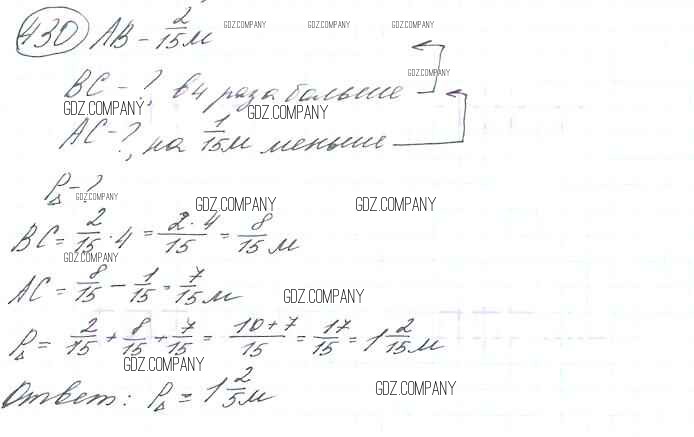 430 AB - 2/15 м GDZ.COMPANY GDZ.COMPANY GDZ.COMPANY
GDZ.COMPANY
BC - ?, в 4 раза больше
GDZ.COMPANY GDZ.COMPANY
AC - ?, на 1/15 м меньше
P△ - ?
GDZ.COMPANY
GDZ.COMPANY GDZ.COMPANY
BC = 2/15 · 4 = 2·4/15 = 8/15 м
GDZ.COMPANY
AC = 8/15 - 1/15 = 7/15 м
GDZ.COMPANY
P△ = 2/15 + 8/15 + 7/15 = 10+7/15 = 17/15 = 1 2/15 м
GDZ.COMPANY
GDZ.COMPANY
Ответ: P△ = 1 2/5 м